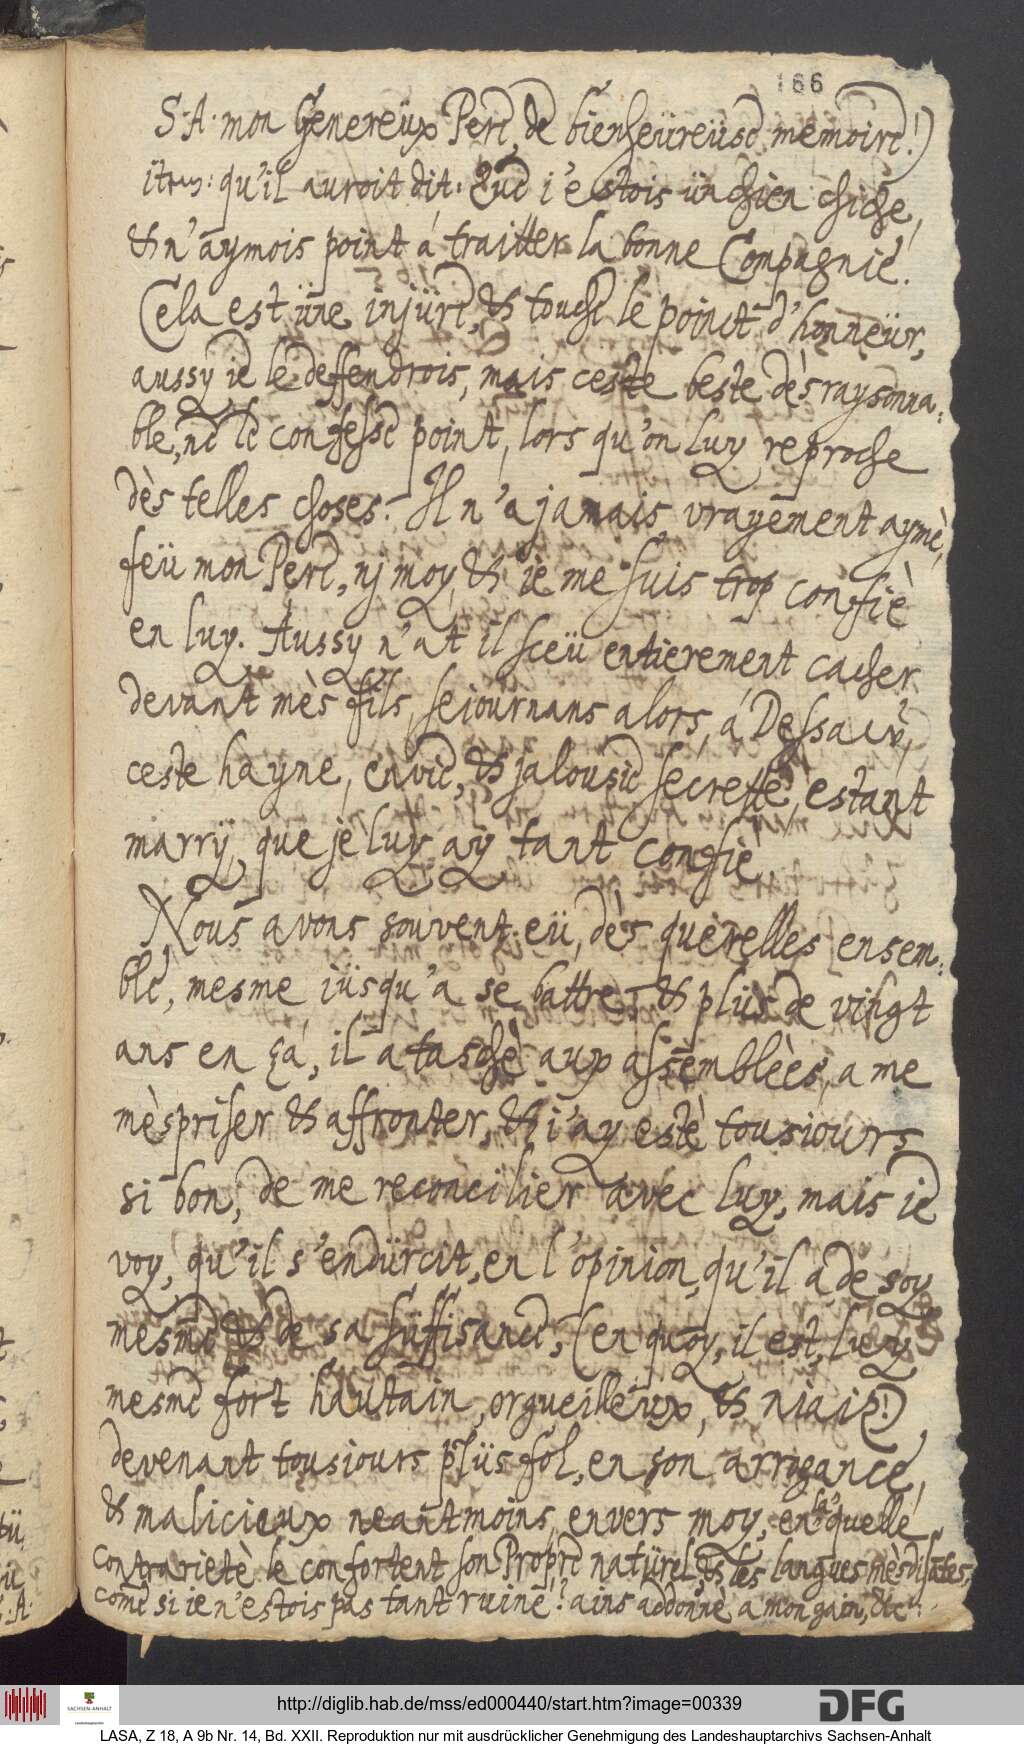 166
S. A. mon Genereüx Pere, de bienheüreüse memoire!)
item: qu'il auroit dit: Que i'estois ün chien chiche,
& n'aymois point á traitter la bonne Compagnie.
Cela est üne injüre, & touche le poinct d'honneür,
aussy ie le deffendrois, mais ceste beste dèsraysonna:
ble, ne le confesse point, lors qu'on luy reproche
dès telles choses. Il n'a jamais vrayement aymè,
feü mon Pere, nj moy, & ie me suis trop confiè
en luy. Aussy n'at il sceü entierement cacher
devant mès fils, sejournans alors, á Dessaw,
ceste hayne, envie, & jalousie secrette, estant
marrÿ, que je luy ay tant confiè.
Nous avons souvent eü, dès querelles ensem:
ble, mesme iüsqu'a se battre, & plüs de vingt
ans en ça, il a taschè aux assemblèes, a me
mèspriser & affronter, & i'ay estè tousiours
si bon, de me reconcilier avec luy, mais ie
voy, qu'il s'endürcit, en l'opinion, qu'il a de soy
mesme & de sa süffisance, (en quoy, il est, luy
mesme fort hautain, orgueilleux, & niais!)
devenant tousiours plüs fol, en son arrogance,
& malicieux neantmoins, envers moy, en laquelle
contrarietè le confortent son Propre natürel, & les langues mèsdisantes,
come si ie n'estois pas tant ruinè? ains addonnè a mon gain, &c.
http://diglib.hab.de/mss/ed000440/start.htm?image=00339
SACHSEN-ANHALT
DFG
LASA, Z 18, A 9b Nr. 14, Bd. XXII. Reproduktion nur mit ausdrücklicher Genehmigung des Landeshauptarchivs Sachsen-Anhalt